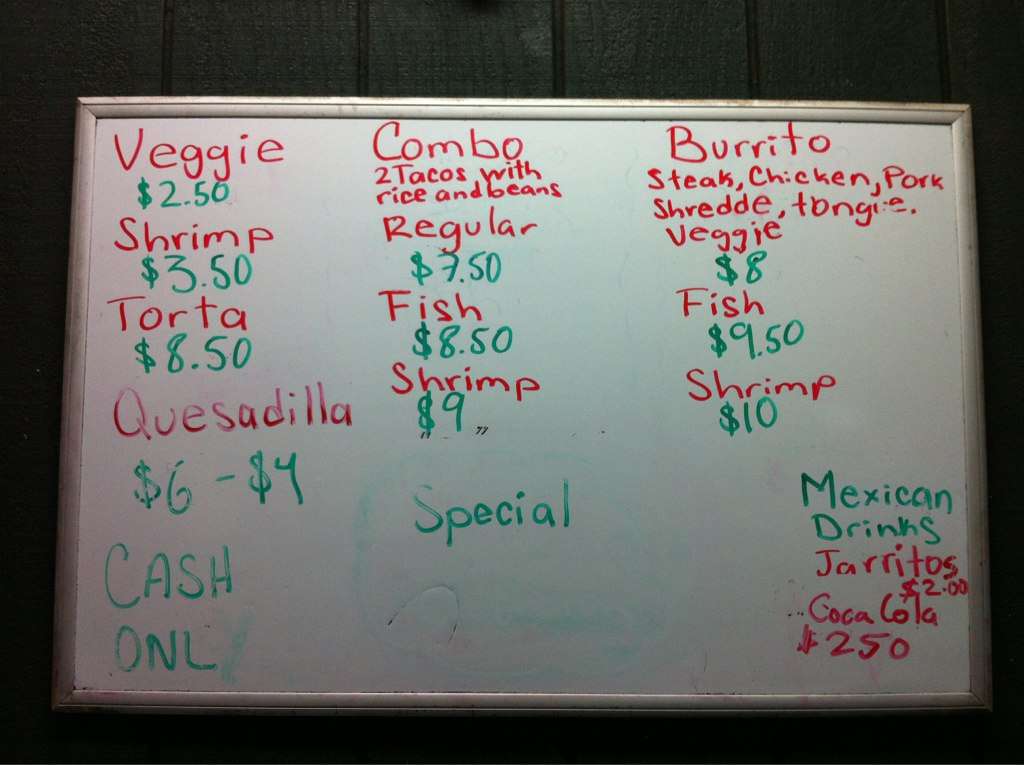 Veggie
$2.50
Shrimp
$3.50
Torta
$8.50
Quesadilla
$6 - $4
CASH
ONLY
Combo
2 Tacos with
rice and beans
Regular
$7.50
Fish
$8.50
Shrimp
$9
Special
Burrito
Steak, Chicken, Pork
Shredde, tongue.
Veggie
$8
Fish
$9.50
Shrimp
$10
Mexican
Drinks
Jarritos
$2.00
Coca Cola
$250